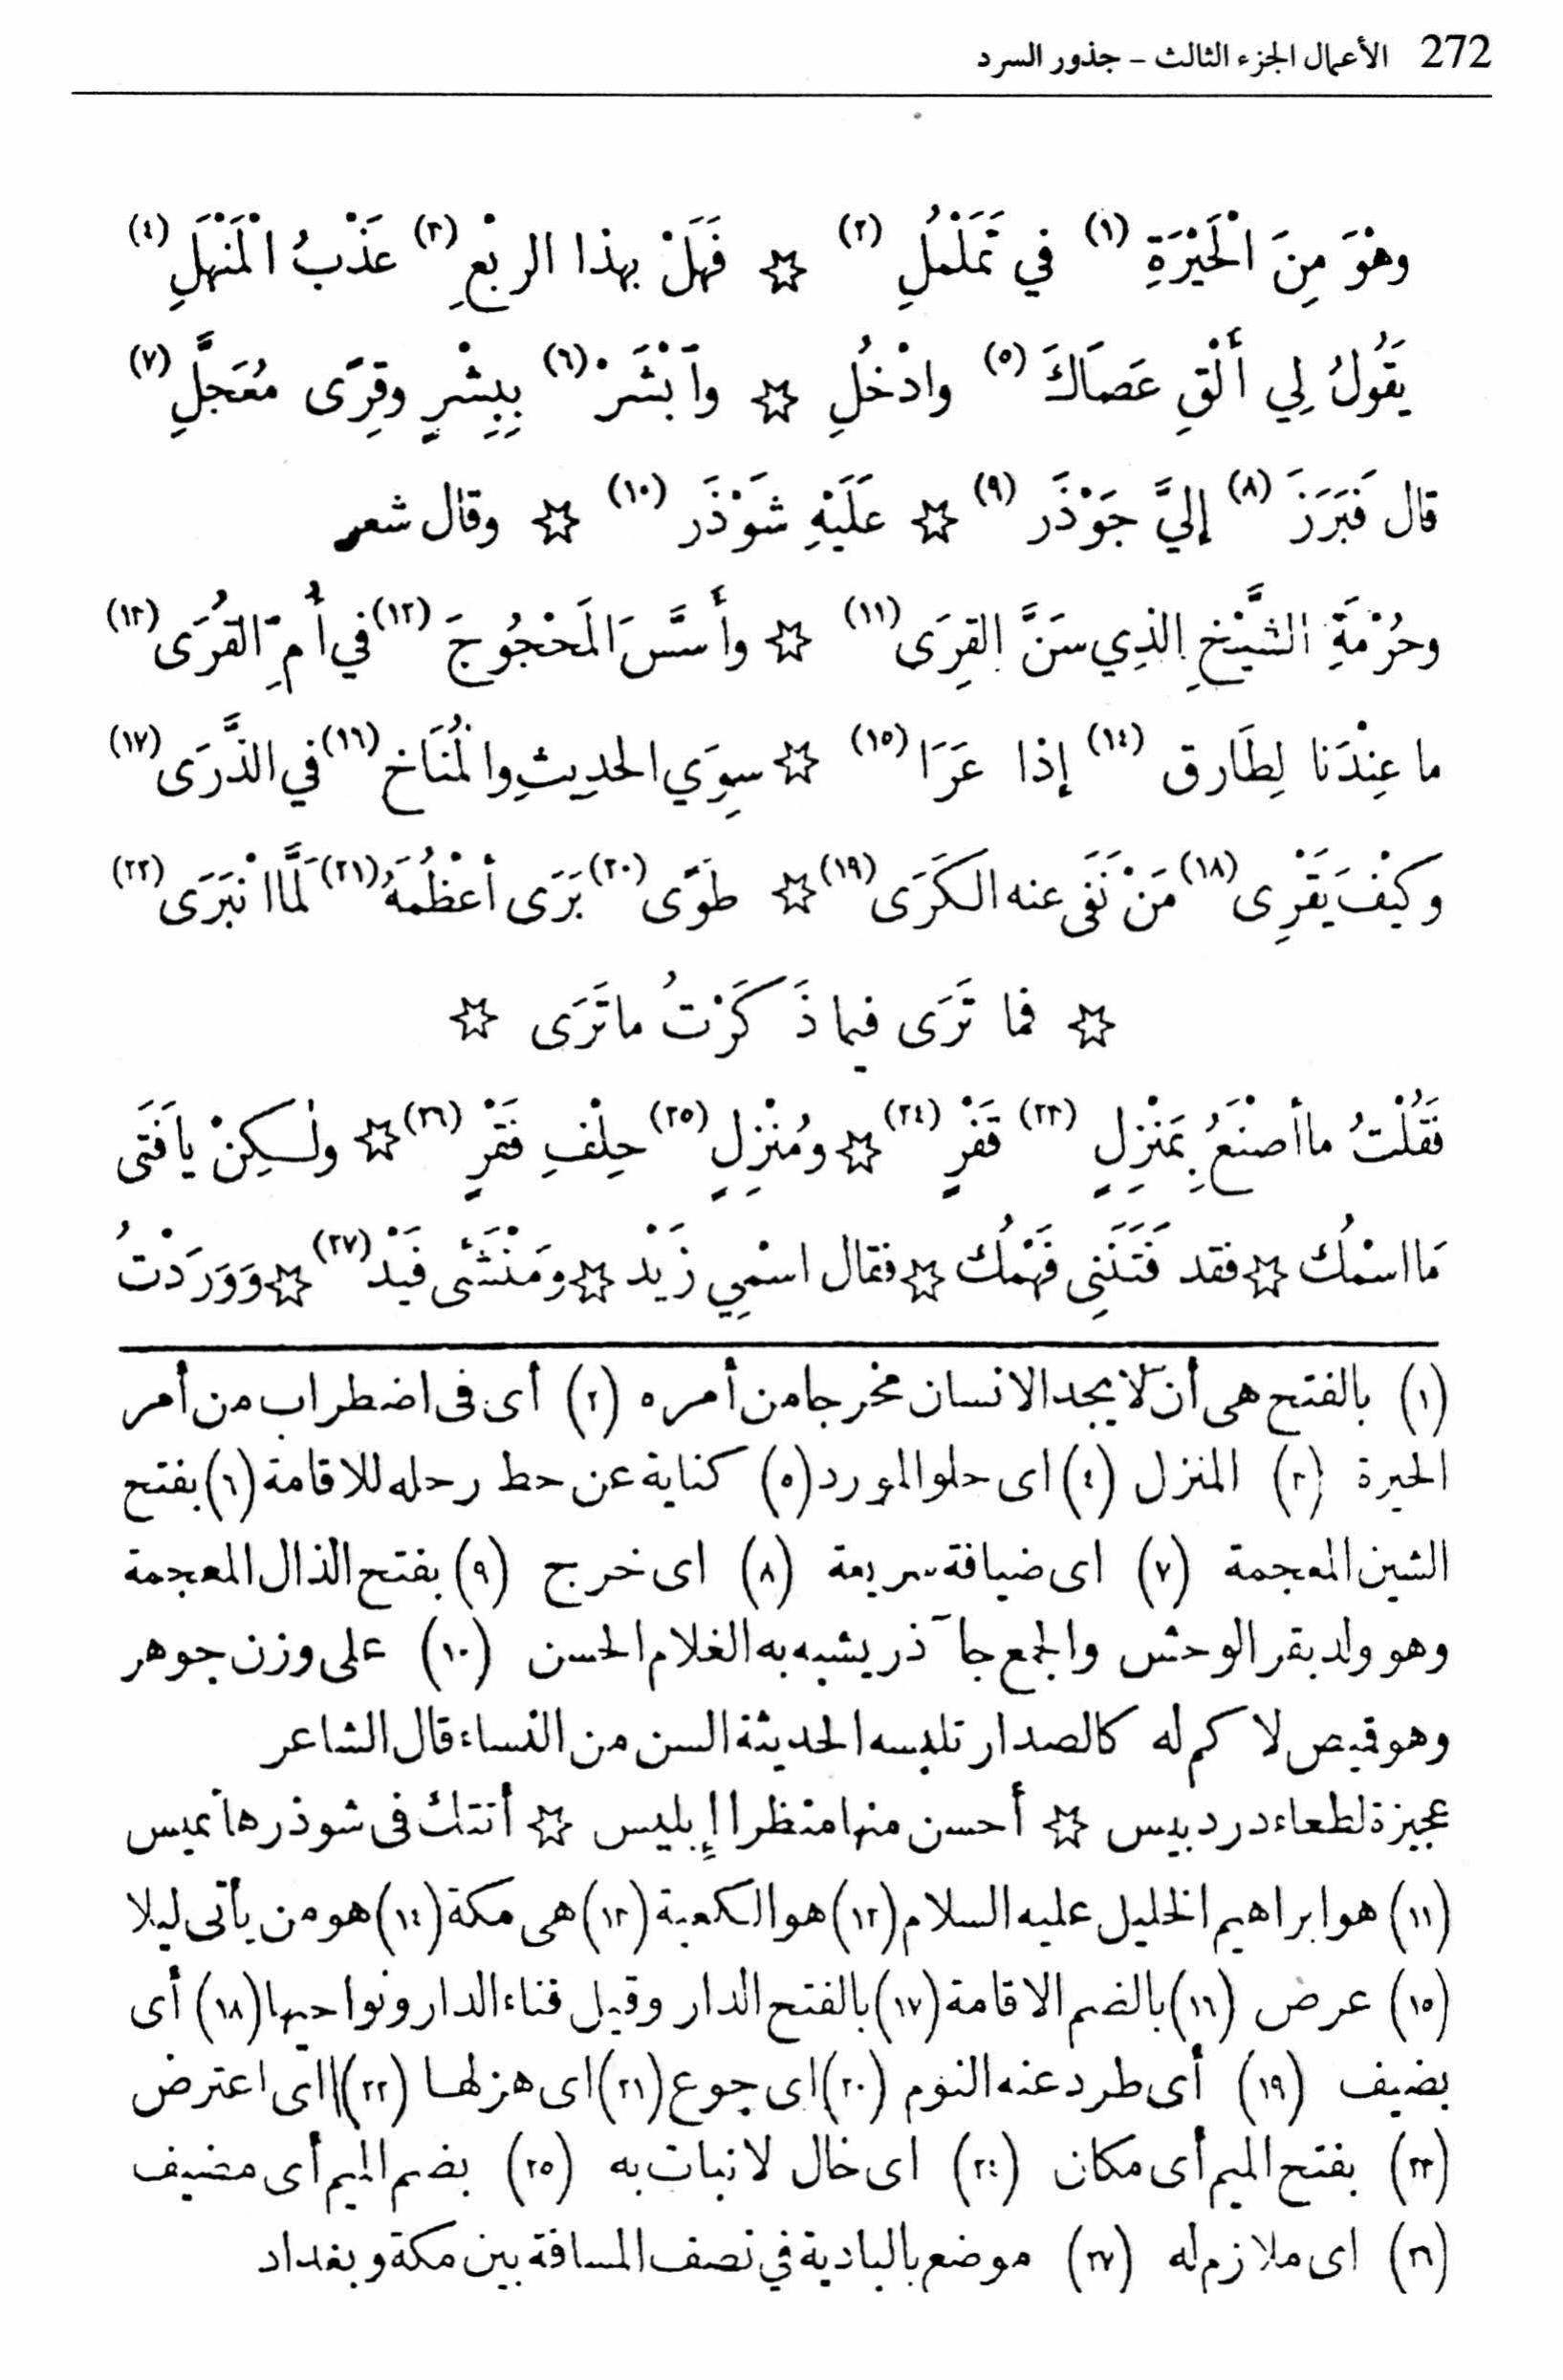 272 الأعمال الجزء الثالث – جذور السرد
وهْوَ مِنَ الْحَيْرَةِ (١) في تَمَلْمُلِ (٢) ☆ فَهَلْ بهذا الربْعِ (٣) عَذْبُ الْمَنْهَلِ (٤)
يَقُولُ لِي أَلْقِ عَصَاكَ (٥) وادْخُلِ ☆ وآبْشَرْ (٦) بِبِشْرٍ وقِرًى مُعَجَّلِ (٧)
قال فَبَرَزَ (٨) إليَّ جَوْذَر (٩) ☆ عَلَيْهِ شَوْذَر (١٠) ☆ وقال شعر
وحُرْمَةِ الشَّيْخِ الذِي سَنَّ القِرَى (١١) ☆ وأَسَّسَ الْمَحْجُوجَ (١٢) في أُمِّ القُرَى (١٣)
ما عِنْدَنا لِطَارِق (١٤) إذا عَرَا (١٥) ☆ سِوَي الحدِيثِ والْمُنَاخِ (١٦) في الذَّرَى (١٧)
وكيْفَ يَقْرِى (١٨) مَنْ نَفَى عنه الكَرَى (١٩) ☆ طَوًى (٢٠) بَرَى أعْظُمَهُ (٢١) لَمَّا انْبَرَى (٢٢)
☆ فما تَرَى فيما ذَكَرْتُ ما تَرَى ☆
فَقُلْتُ ما أصْنَعُ بِمَنْزِلٍ (٢٣) قَفْرٍ (٢٤) ☆ ومُنْزِلٍ (٢٥) حِلْفِ فَقْرٍ (٢٦) ☆ ولٰكِنْ يا فَتَى
مَا اسْمُك ☆ فقد فَتَنَنِى فَهْمُك ☆ فقال اسْمِي زَيْد ☆ ومَنْشَئى فَيْد (٢٧) ☆ وَوَرَدْتُ
(١) بالفتح هى أن لا يجد الانسان مخرجا من أمره (٢) أى فى اضطراب من أمر
الحيرة (٣) المنزل (٤) اى حلو المورد (٥) كناية عن حط رحله للاقامة (٦) بفتح
الشين المعجمة (٧) اى ضيافة سريعة (٨) اى خرج (٩) بفتح الذال المعجمة
وهو ولد بقر الوحش والجمع جآذر يشبه به الغلام الحسن (١٠) على وزن جوهر
وهو قميص لا كم له كالصدار تلبسه الحديثة السن من النساء قال الشاعر
عجيزة لطعاء دردبيس ☆ أحسن منها منظرا إبليس ☆ أتتك فى شوذرها تميس
(١١) هو ابراهيم الخليل عليه السلام (١٢) هو الكعبة (١٣) هى مكة (١٤) هو من يأتى ليلا
(١٥) عرض (١٦) بالضم الاقامة (١٧) بالفتح الدار وقيل فناء الدار ونواحيها (١٨) أى
يضيف (١٩) أى طرد عنه النوم (٢٠) اى جوع (٢١) اى هزلها (٢٢) اى اعترض
(٢٣) بفتح الميم أى مكان (٢٤) اى خال لا نبات به (٢٥) بضم الميم أى مضيف
(٢٦) اى ملازم له (٢٧) موضع بالبادية في نصف المسافة بين مكة وبغداد